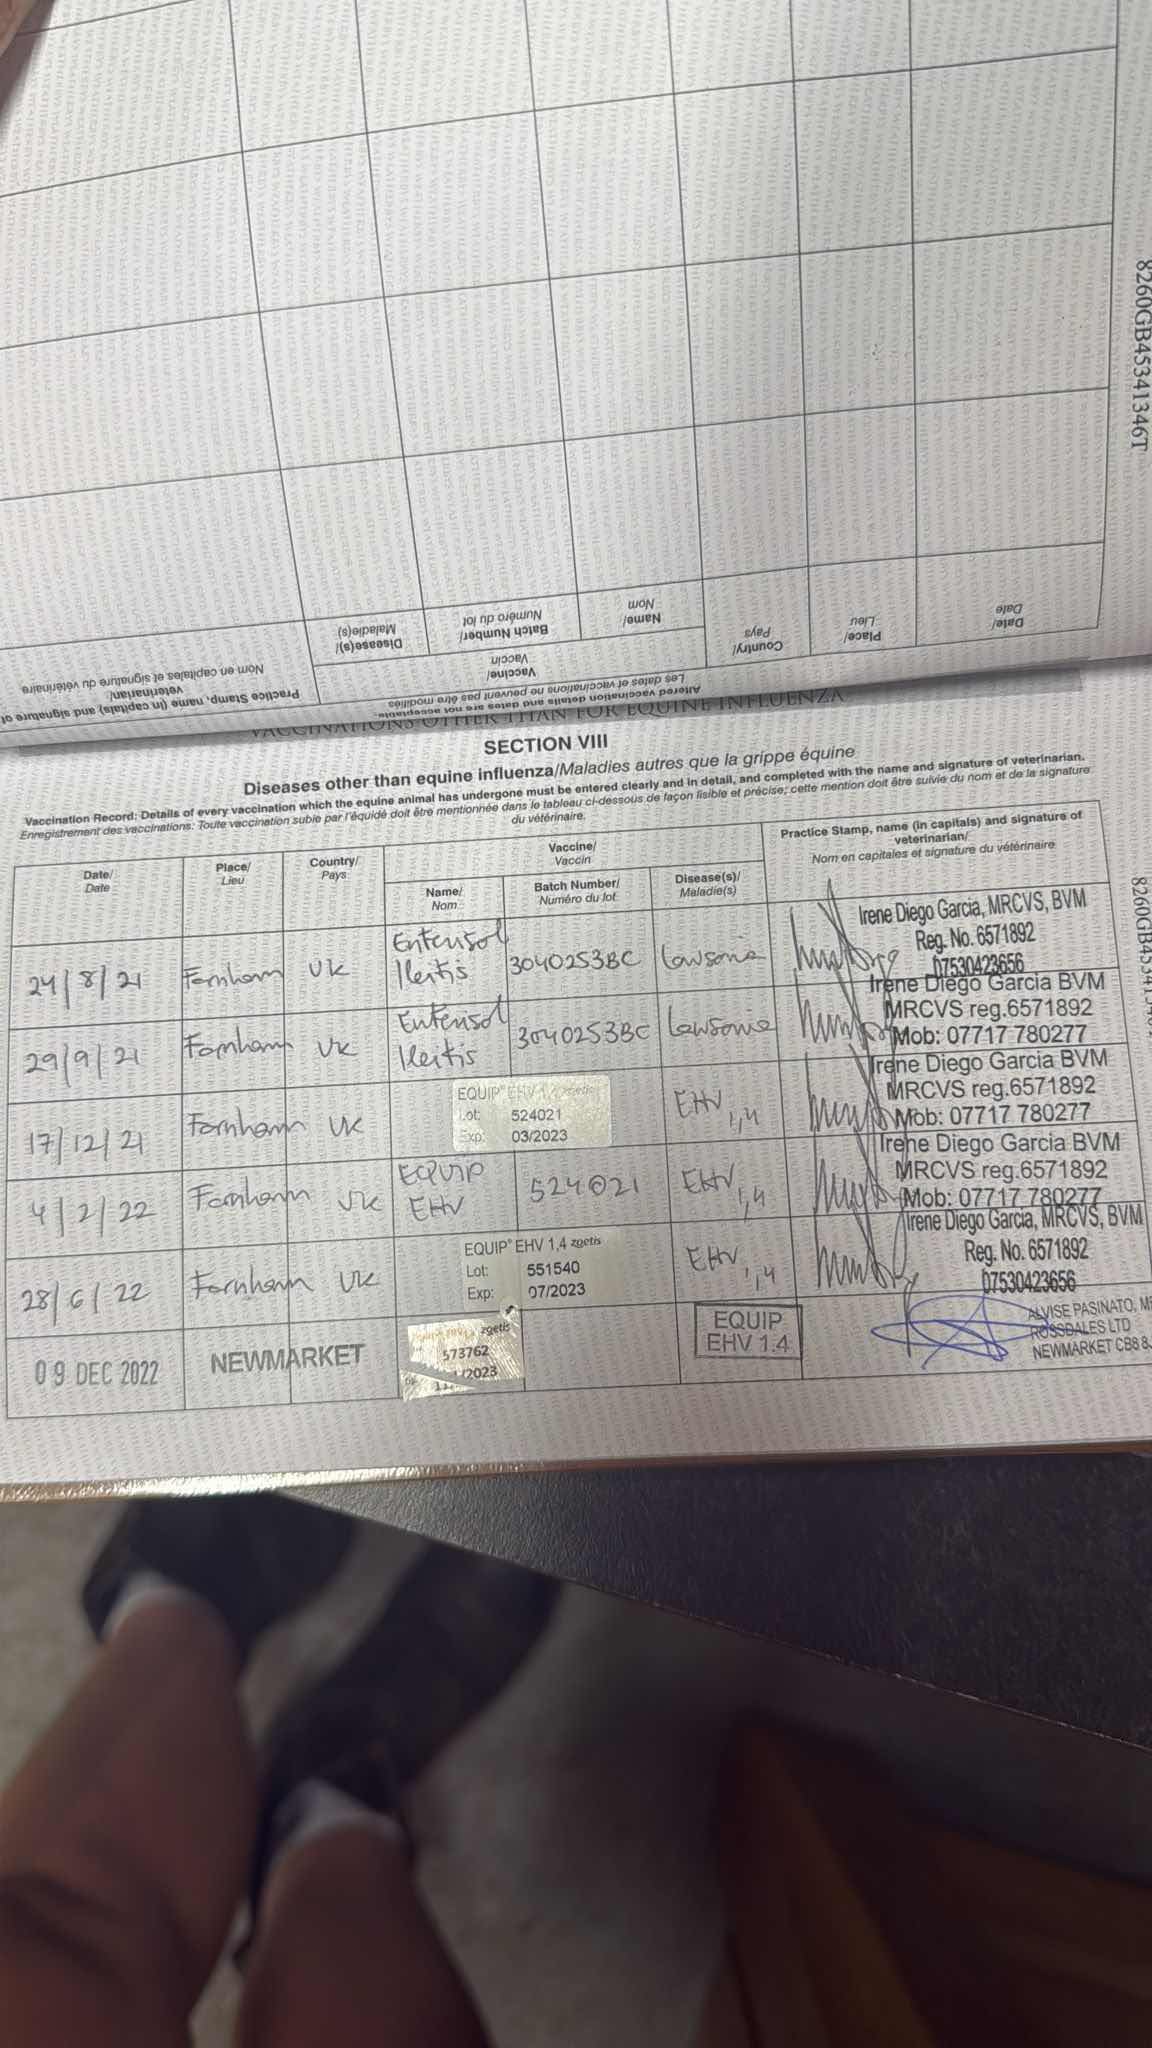 8260GB45341346T
Date/
Date
Place/
Lieu
Country/
Pays
Vaccine/
Vaccin
Name/
Nom
Batch Number/
Numéro du lot
Disease(s)/
Maladie(s)
Practice Stamp, name (in capitals) and signature of
veterinarian/
Nom en capitales et signature du vétérinaire
Altered vaccination details and dates are not acceptable.
Les dates et vaccinations ne peuvent pas être modifiés
VACCINATIONS OTHER THAN FOR EQUINE INFLUENZA
SECTION VIII
Diseases other than equine influenza/Maladies autres que la grippe équine
Vaccination Record: Details of every vaccination which the equine animal has undergone must be entered clearly and in detail, and completed with the name and signature of veterinarian.
Enregistrement des vaccinations: Toute vaccination subie par l'équidé doit être mentionnée dans le tableau ci-dessous de façon lisible et précise; cette mention doit être suivie du nom et de la signature
du vétérinaire.
Date/
Date
Place/
Lieu
Country/
Pays
Vaccine/
Vaccin
Name/
Nom
Batch Number/
Numéro du lot
Disease(s)/
Maladie(s)
Practice Stamp, name (in capitals) and signature of
veterinarian/
Nom en capitales et signature du vétérinaire
24/8/21 Farnham UK Enterisol
Ileitis 3040253BC Lawsonia
Irene Diego Garcia, MRCVS, BVM
Reg. No. 6571892
07530423656
29/9/21 Farnham UK Enterisol
Ileitis 3040253BC Lawsonia
Irene Diego Garcia BVM
MRCVS reg.6571892
Mob: 07717 780277
17/12/21 Farnham UK
EQUIP® EHV 1,4 zoetis
Lot: 524021
Exp: 03/2023
EHV 1,4
Irene Diego Garcia BVM
MRCVS reg.6571892
Mob: 07717 780277
4/2/22 Farnham UK EQUIP
EHV 524021 EHV 1,4
Irene Diego Garcia BVM
MRCVS reg.6571892
Mob: 07717 780277
28/6/22 Farnham UK
EQUIP® EHV 1,4 zoetis
Lot: 551540
Exp: 07/2023
EHV 1,4
Irene Diego Garcia, MRCVS, BVM
Reg. No. 6571892
07530423656
09 DEC 2022 NEWMARKET
zoetis
573762
/2023
EQUIP
EHV 1.4
ALVISE PASINATO,
ROSSDALES LTD
NEWMARKET CB8